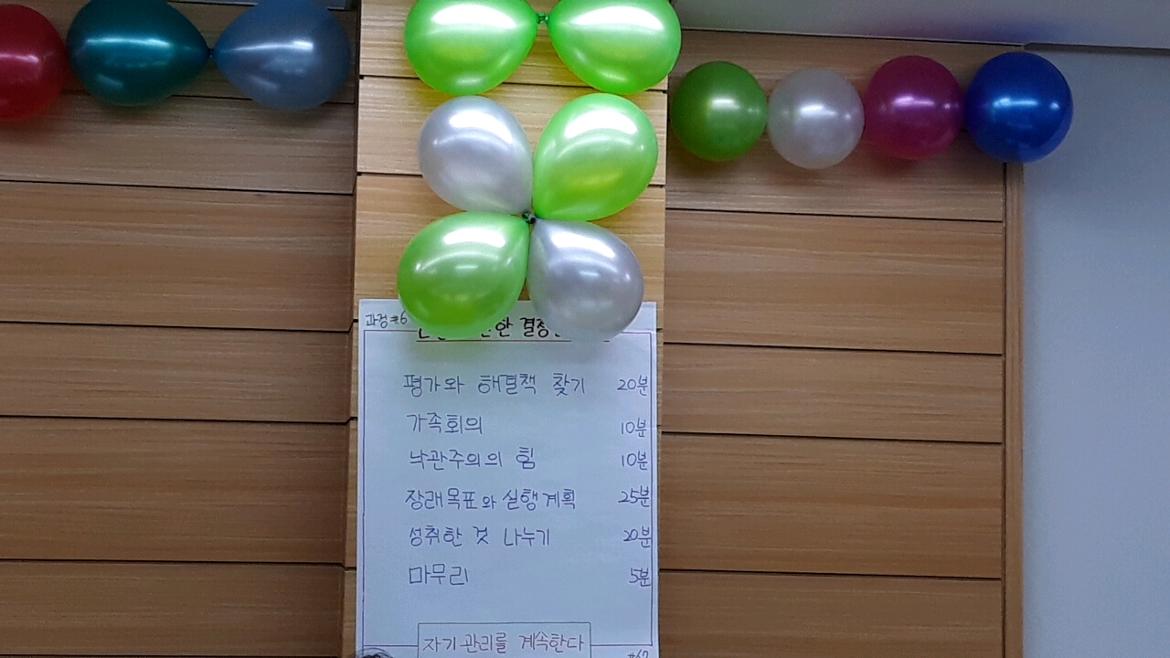 과정 #6
한 결정
평가와 해결책 찾기 20분
가족회의 10분
낙관주의의 힘 10분
장래목표와 실행계획 25분
성취한 것 나누기 20분
마무리 5분
자기관리를 계속한다